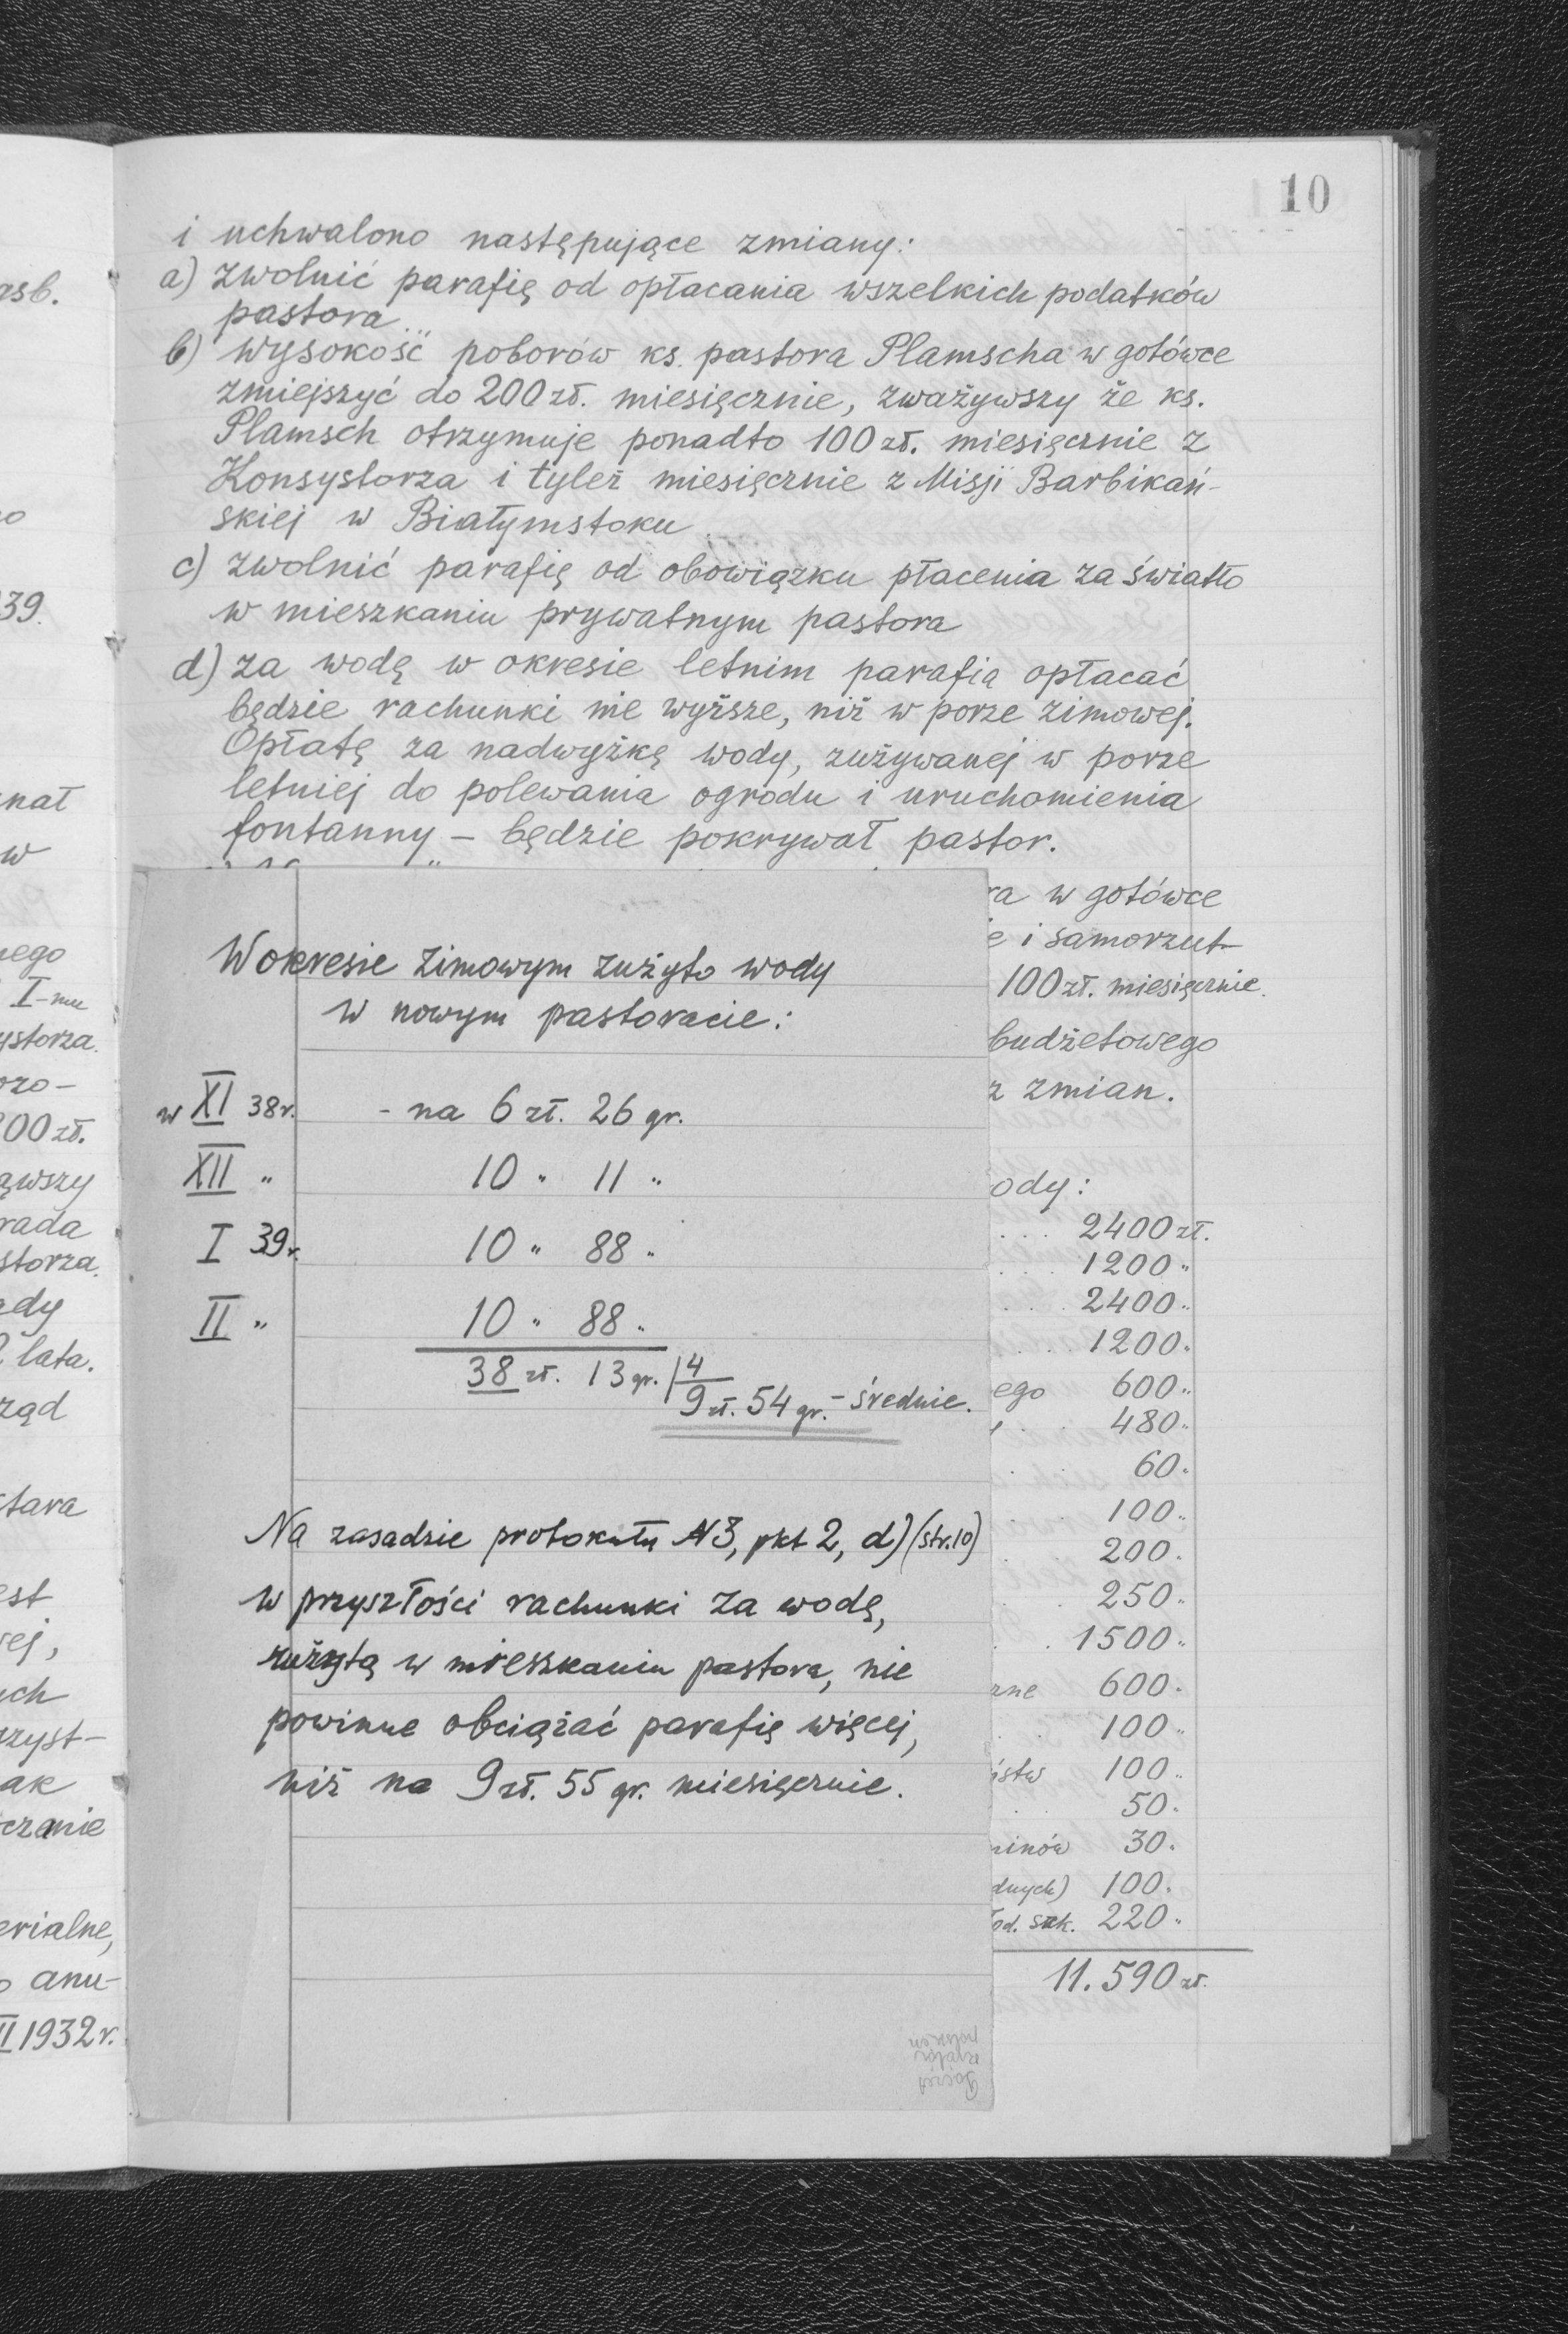 10
i uchwalono następujące zmiany:
a) zwolnić parafię od opłacania wszelkich podatków
pastora
b) wysokość poborów ks. pastora Plamscha w gotówce
zmiejszyć do 200 zł. miesięcznie, zważywszy że ks.
Plamsch otrzymuje ponadto 100 zł. miesięcznie z
Konsystorza i tyleż miesięcznie z Misji Barbikań-
skiej w Białymstoku
c) zwolnić parafię od obowiązku płacenia za światło
w mieszkaniu prywatnym pastora
d) za wodę w okresie letnim parafia opłacać
będzie rachunki nie wyższe, niż w porze zimowej.
Opłatę za nadwyżkę wody, zużywanej w porze
letniej do polewania ogrodu i uruchomienia
fontanny – będzie pokrywał pastor.
ra w gotówce
e i samorzut-
100 zł. miesięcznie.
budżetowego
z zmian.
ody:
2400 zł.
1200 "
2400 "
1200 "
ego 600 "
480 "
60 "
100 "
200 "
250 "
1500 "
zne 600 "
100 "
ństw 100 "
50 "
minów 30 "
dnych) 100 "
od. szk. 220 "
11.590 zł.
W okresie zimowym zużyto wody
w nowym pastoracie:
w XI 38 r. - na 6 zł. 26 gr.
XII " 10 " 11 "
I 39 r. 10 " 88 "
II " 10 " 88 "
38 zł. 13 gr. | 4
9 zł. 54 gr. – średnie.
Na zasadzie protokułu N 3, pkt 2, d) (str. 10)
w przyszłości rachunki za wodę,
zużytą w mieszkaniu pastora, nie
powinne obciążać parafię więcej,
niż na 9 zł. 55 gr. miesięcznie.
asb.
o
39.
nał
w
nego
I-mu
ystorza.
oro-
200 zł.
ąwszy
rada
storza.
ady
2 lata.
rząd
tara
est
ej,
ych
rzyst-
ak
czanie
erialne,
o anu-
II 1932 r.